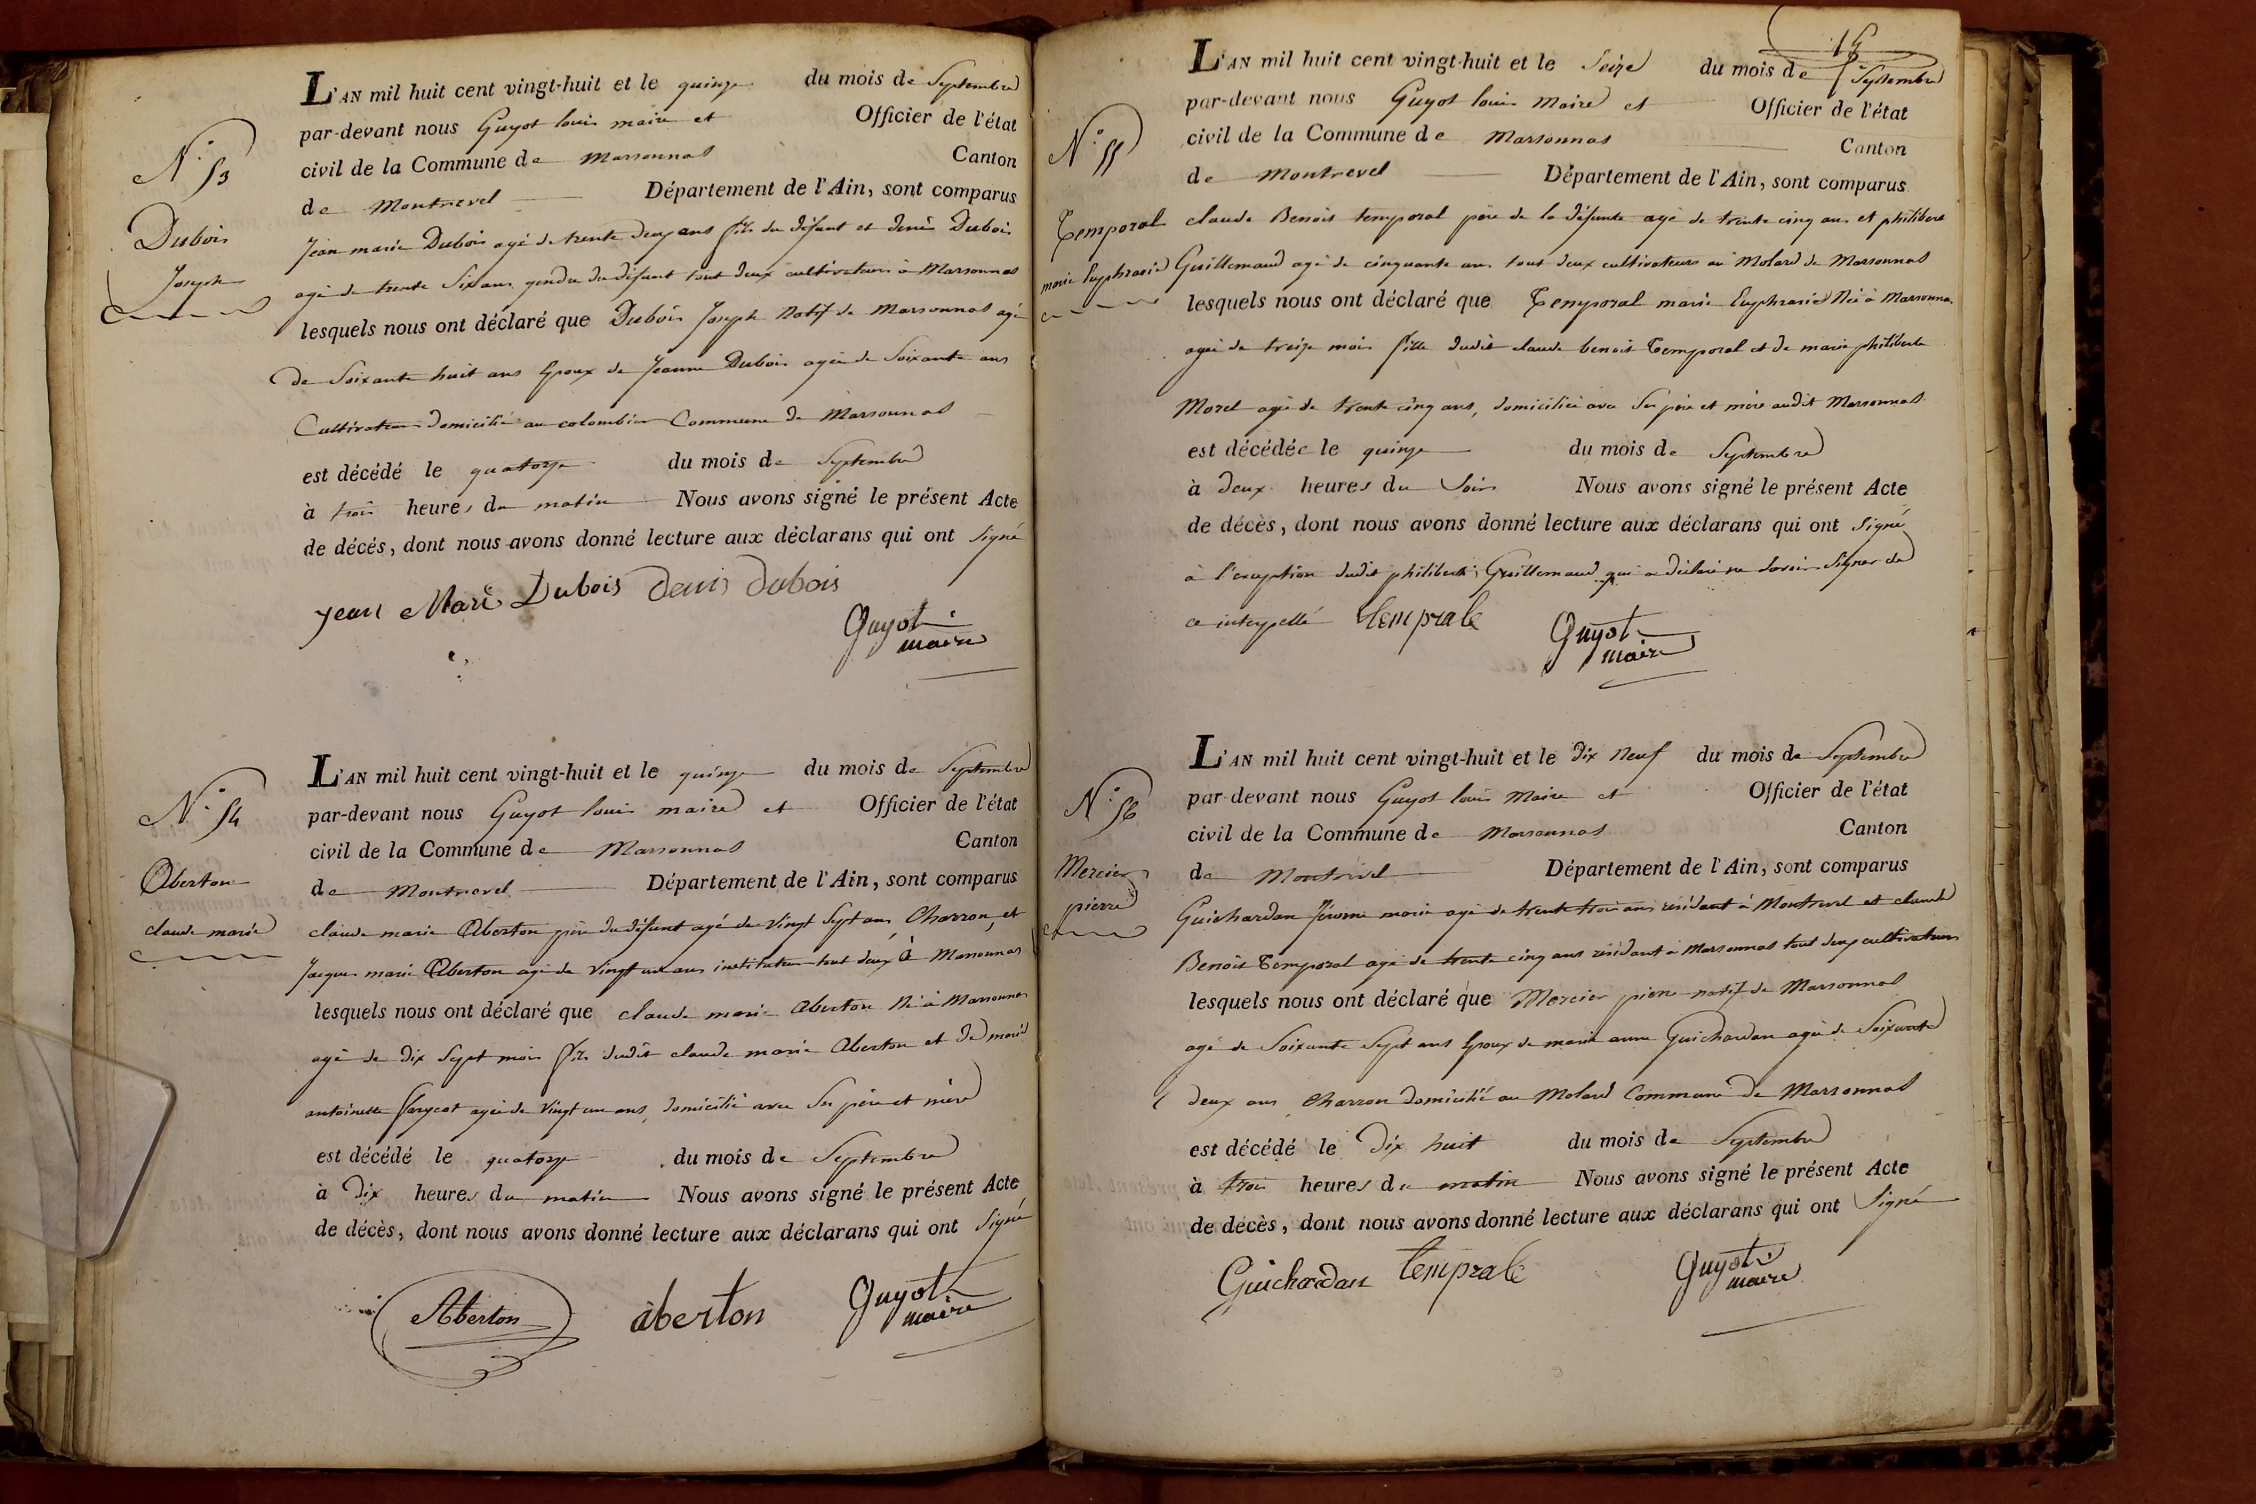 N.° 53
Dubois
Joseph
L'AN mil huit cent vingt-huit et le quinze du mois de Septembre
par-devant nous Guyot louis maire et Officier de l'état
civil de la Commune de Marsonnas Canton
de Montrevel Département de l'Ain, sont comparus
Jean marie Dubois agé de trente deux ans fils du défunt et denis Dubois
agé de trente Six ans gendre du défunt tout deux cultivateurs à Marsonnas
lesquels nous ont déclaré que Dubois Joseph Natif de Marsonnas agé
de Soixante huit ans Epoux de Jeanne Dubois agée de Soixante ans
Cultivateur domicilié au colombier Commune de Marsonnas
est décédé le quatorze du mois de Septembre
à trois heures du matin Nous avons signé le présent Acte
de décés, dont nous avons donné lecture aux déclarans qui ont Signé
jean Marie Dubois denis dubois
Guyot
maire
N.° 54
Aberton
claude marie
L'AN mil huit cent vingt-huit et le quinze du mois de Septembre
par-devant nous Guyot louis maire et Officier de l'état
civil de la Commune de Marsonnas Canton
de Montrevel Département de l'Ain, sont comparus
claude marie Aberton père du défunt agé de vingt Sept ans, Charron, et
Jacques marie Aberton agé de vingt un ans instituteur tout deux à Marsonnas
lesquels nous ont déclaré que claude marie Aberton Né à Marsonnas
agé de dix Sept mois fils dudit claude marie Aberton et de marie
antoinette agée de vingt un ans, domicilié avec Ses père et mère
est décédé le quatorze du mois de Septembre
à Dix heures du matin Nous avons signé le présent Acte
de décès, dont nous avons donné lecture aux déclarans qui ont Signé
Aberton aberton Guyot
maire
15
N.° 55
Temporal
marie Euphrasie
L'AN mil huit cent vingt-huit et le Seize du mois de Septembre
par-devant nous Guyot louis Maire et Officier de l'état
civil de la Commune de Marsonnas Canton
de Montrevel Département de l'Ain, sont comparus
claude Benoit temporal père de la défunte agé de trente cinq ans et philibert
Guillemaud agé de cinquante ans tout deux cultivateurs au Molard de Marsonnas
lesquels nous ont déclaré que Temporal marie Euphrasie Née à Marsonnas
agée de treize mois fille dudit claude benoit Temporal et de marie philiberte
Morel agée de trente cinq ans, domiciliée avec Ses père et mère audit Marsonnas
est décédée le quinze du mois de Septembre
à deux heures du Soir Nous avons signé le présent Acte
de décès, dont nous avons donné lecture aux déclarans qui ont Signé
à l'exception dudit philibert Guillemaud qui a déclaré ne Savoir Signer de
ce interpellé temprale Guyot
maire
N.° 56
Mercier
pierre
L'AN mil huit cent vingt-huit et le Dix Neuf du mois de Septembre
par-devant nous Guyot louis Maire et Officier de l'état
civil de la Commune de Marsonnas Canton
de Montrevel Département de l'Ain, sont comparus
Guichardan Jérome marie agé de trente trois ans résidant à Montrevel et claude
Benoit Temporal agé de trente cinq ans résidant à Marsonnas tout deux cultivateurs
lesquels nous ont déclaré que Mercier pierre natif de Marsonnas
agé de Soixante Sept ans Epoux de marie anne Guichardan agée de Soixante
deux ans Charron domicilié au Molard Commune de Marsonnas
est décédé le Dix huit du mois de Septembre
à trois heures du matin Nous avons signé le présent Acte
de décès, dont nous avons donné lecture aux déclarans qui ont Signé
Guichardan temprale Guyot
maire